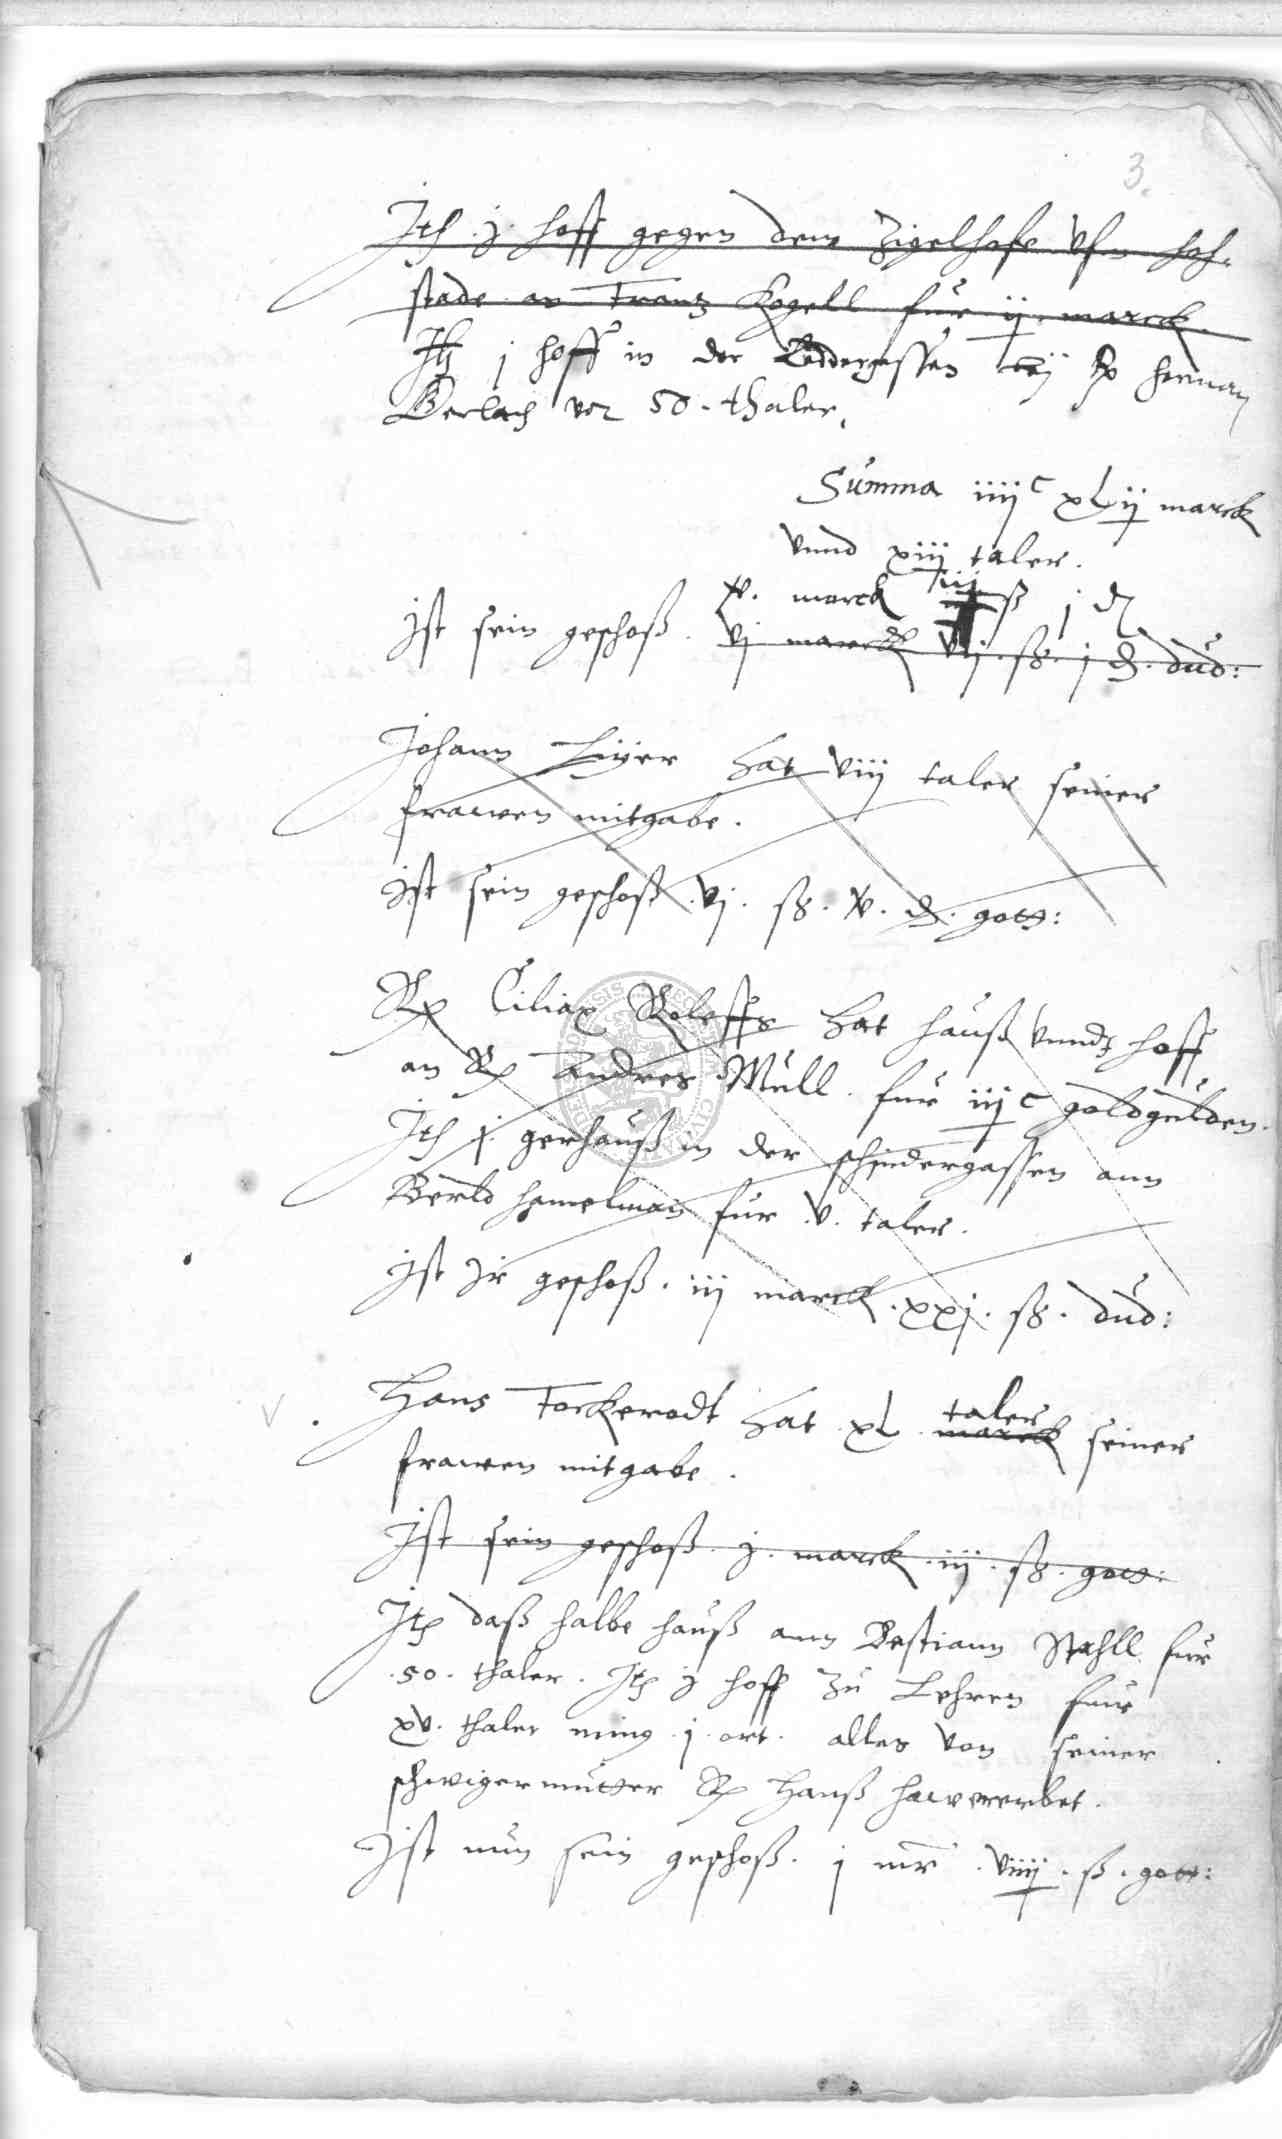 3.
Itẽ .j. hoff gegen dem Zigelhofe vfm hoh-
stade an Frantz Kogell fur ij marck.
Itẽ j hoff in der Leddergassen Rẽ herman
Gerlach vor 50 . thaler.
Summa iiijc xlij marck
vnnd xiij taler.
v. marck ß j ₰
Ist sein geschoß . vj marck vij . ß . j ₰ . dud:
Johann Eijer hat viij taler seiner
frawen mitgabe .
Ist sein geschoß . vj . ß . v . ₰ . gott:
Rẽ Ciliax Roleffs hat hauß vnndt hoff
an Rẽ Andres Mull . fur iijc goldgulden .
Itẽ j. gerhauß in der schindergassen ann
Bertld hamelman fur .v. taler .
Ist Ir geschoß . iij marck . xxj . ß . dud:
taler
Hans Tockerodt hat xl . marck seiner
frawen mitgabe .
Ist sein geschoß . j . marck . iij . ß . gott:
Itẽ daß halbe hauß ann Bestiann Stahll fur
. 50 . thaler . Itẽ j hoff zu Lehren fur
xv . thaler minỹ . j . ort . alles von seiner
schwigermutter Rẽ Hanß hawererbet .
Ist nun sein geschoß . j mr̃ . viiij . ß . gott: